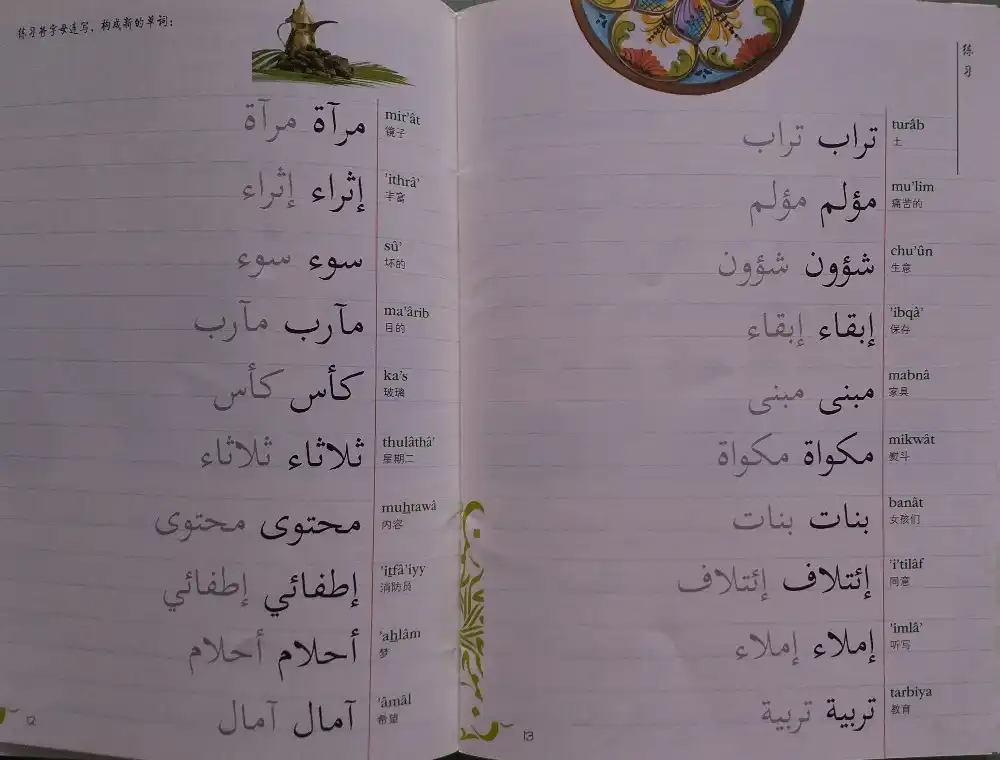 练习各字母连写，构成新的单词：
مرآة مرآة mir'ât
镜子
إثراء إثراء 'ithrâ'
丰富
سوء سوء sû'
坏的
مآرب مآرب ma'ârib
目的
كأس كأس ka's
玻璃
ثلاثاء ثلاثاء thulâthâ'
星期二
محتوى محتوى muhtawâ
内容
إطفائي إطفائي 'itfâ'iyy
消防员
أحلام أحلام 'ahlâm
梦
آمال آمال 'âmâl
希望
12
练习
تراب تراب turâb
土
مؤلم مؤلم mu'lim
痛苦的
شؤون شؤون chu'ûn
生意
إبقاء إبقاء 'ibqâ'
保存
مبنى مبنى mabnâ
家具
مكواة مكواة mikwât
熨斗
بنات بنات banât
女孩们
إئتلاف إئتلاف 'i'tilâf
同意
إملاء إملاء 'imlâ'
听写
تربية تربية tarbiya
教育
13